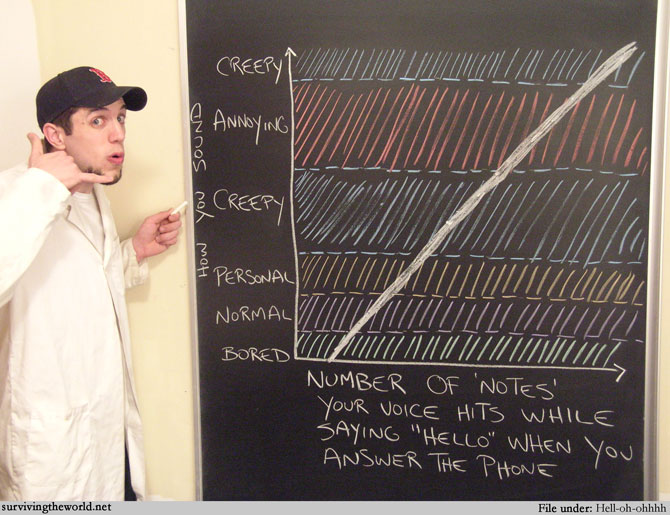 CREEPY
ANNOYING
CREEPY
PERSONAL
NORMAL
BORED
HOW YOU SOUND
NUMBER OF 'NOTES'
YOUR VOICE HITS WHILE
SAYING "HELLO" WHEN YOU
ANSWER THE PHONE
survivingtheworld.net
File under: Hell-oh-ohhhh